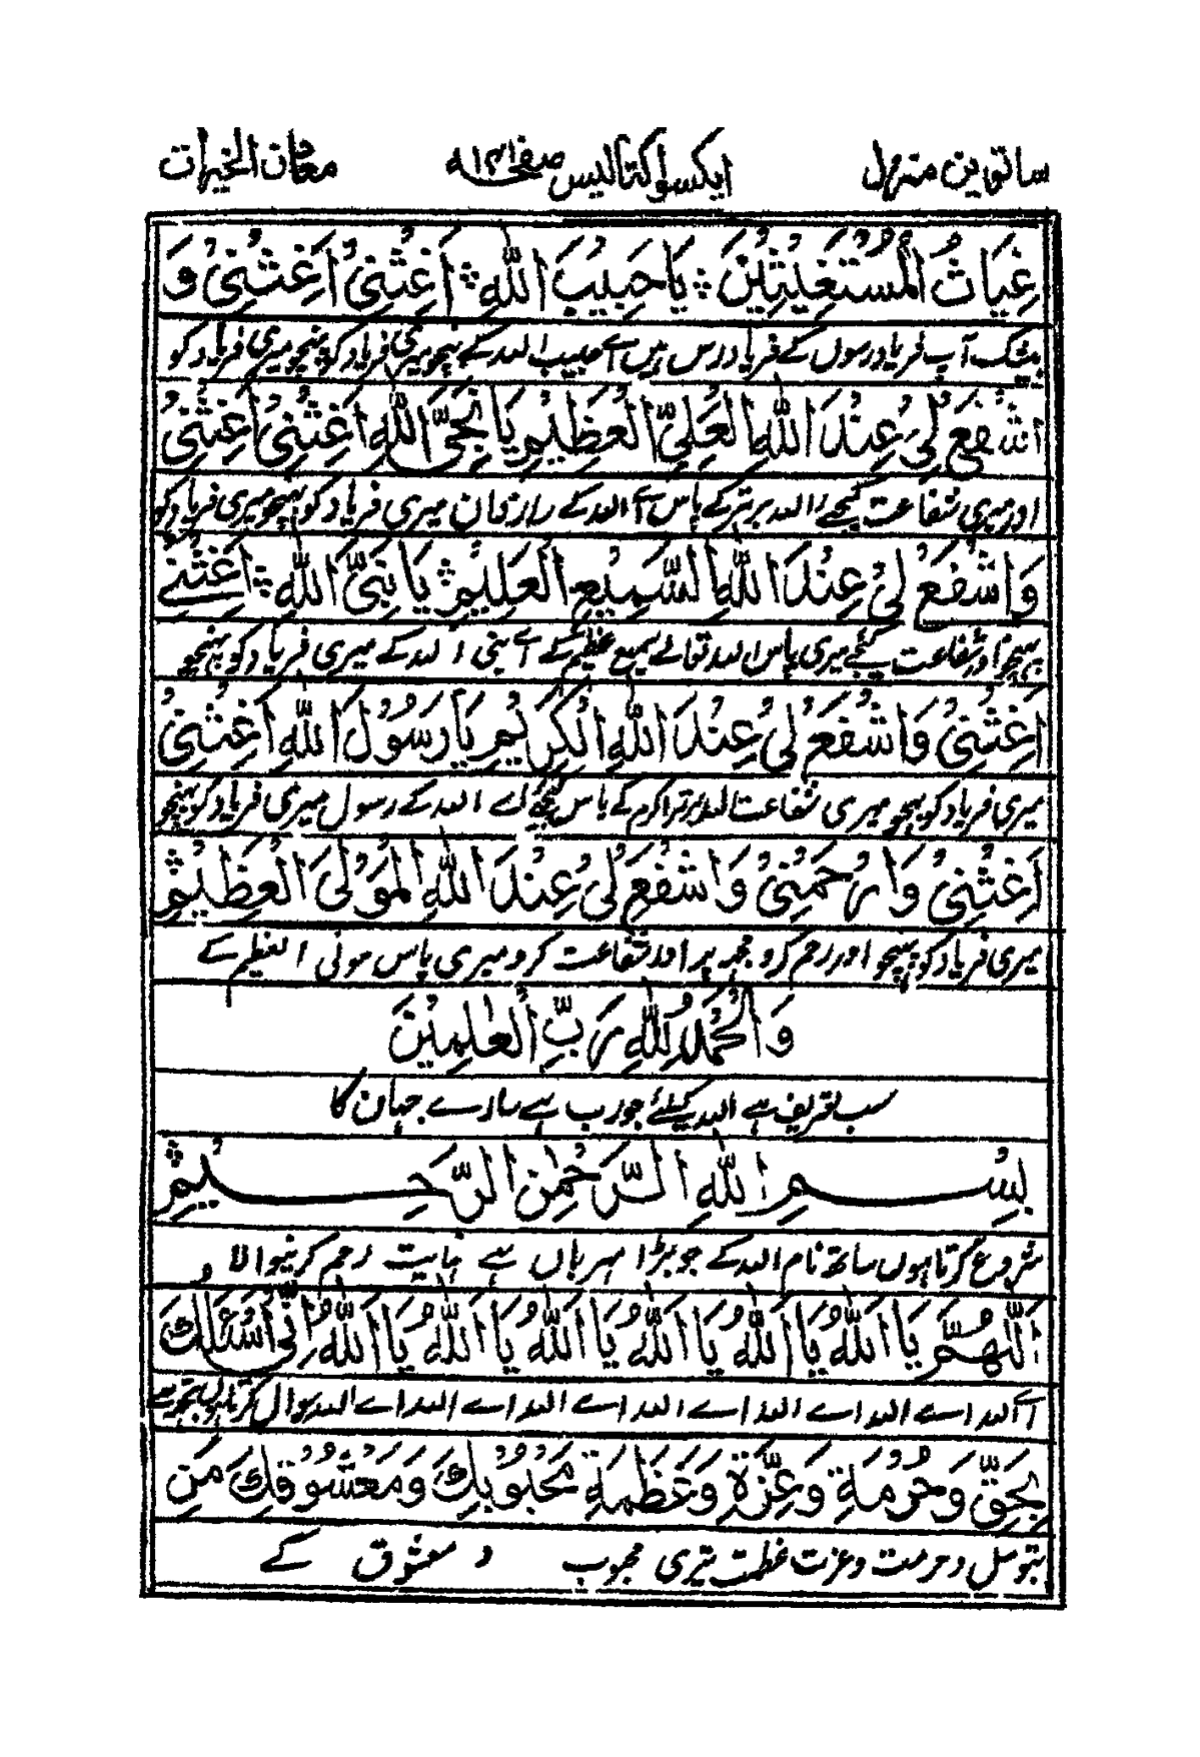 ساتویں منزل ایکسو اکتالیس صفحہ ۱۴۱ معدن الخیرات
غِيَاثُ الْمُسْتَغِيْثِيْنَ ۞ يَا حَبِيْبَ اللهِ ۞ اَغِثْنِيْ اَغِثْنِيْ وَ
بیشک آپ فریادرسوں کے فریادرس ہیں اے حبیب اللہ کے پہنچو میری فریاد کو پہنچو میری فریاد کو
اشْفَعْ لِيْ عِنْدَ اللهِ الْعَلِيِّ الْعَظِيْمِ يَا نَجِيَّ اللهِ اَغِثْنِيْ اَغِثْنِيْ
اور میری شفاعت کیجے اللہ برتر کے پاس اے اللہ کے رازدان میری فریاد کو پہنچو میری فریاد کو
وَاشْفَعْ لِيْ عِنْدَ اللهِ السَّمِيْعِ الْعَلِيْمِ ۞ يَا نَبِيَّ اللهِ ۞ اَغِثْنِيْ
پہنچو اور شفاعت کیجے میری پاس اللہ تعالے سمیع عظیم کے اے نبی اللہ کے میری فریاد کو پہنچو
اَغِثْنِيْ وَاشْفَعْ لِيْ عِنْدَ اللهِ الْكَرِيْمِ يَا رَسُوْلَ اللهِ اَغِثْنِيْ
میری فریاد کو پہنچو میری شفاعت اللہ برتر اکرم کے پاس کیجے اے اللہ کے رسول میری فریاد کو پہنچو
اَغِثْنِيْ وَارْحَمْنِيْ وَاشْفَعْ لِيْ عِنْدَ اللهِ الْمَوْلَى الْعَظِيْمِ
میری فریاد کو پہنچو اور رحم کرو مجھ پر اور شفاعت کرو میری پاس مولی العظیم کے
وَالْحَمْدُ لِلّٰهِ رَبِّ الْعٰلَمِيْنَ
سب تعریف ہے اللہ کیلئے جو رب ہے سارے جہان کا
بِسْمِ اللهِ الرَّحْمٰنِ الرَّحِيْمِ
شروع کرتا ہوں ساتھ نام اللہ کے جو بڑا مہربان ہے نہایت رحم کرنیوالا
اَللّٰهُمَّ يَا اَللهُ يَا اَللهُ يَا اَللهُ يَا اَللهُ يَا اَللهُ يَا اَللهُ اِنِّيْ اَسْئَلُكَ
اے اللہ اے اللہ اے اللہ اے اللہ اے اللہ اے اللہ اے اللہ سوال کرتا ہوں تجھ سے
بِحَقِّ وَحُرْمَةِ وَعِزَّةِ وَعَظَمَةِ مَحْبُوْبِكَ وَمَعْشُوْقِكَ مَنْ
بتوسل و حرمت و عزت عظمت تیری محبوب و معشوق کے